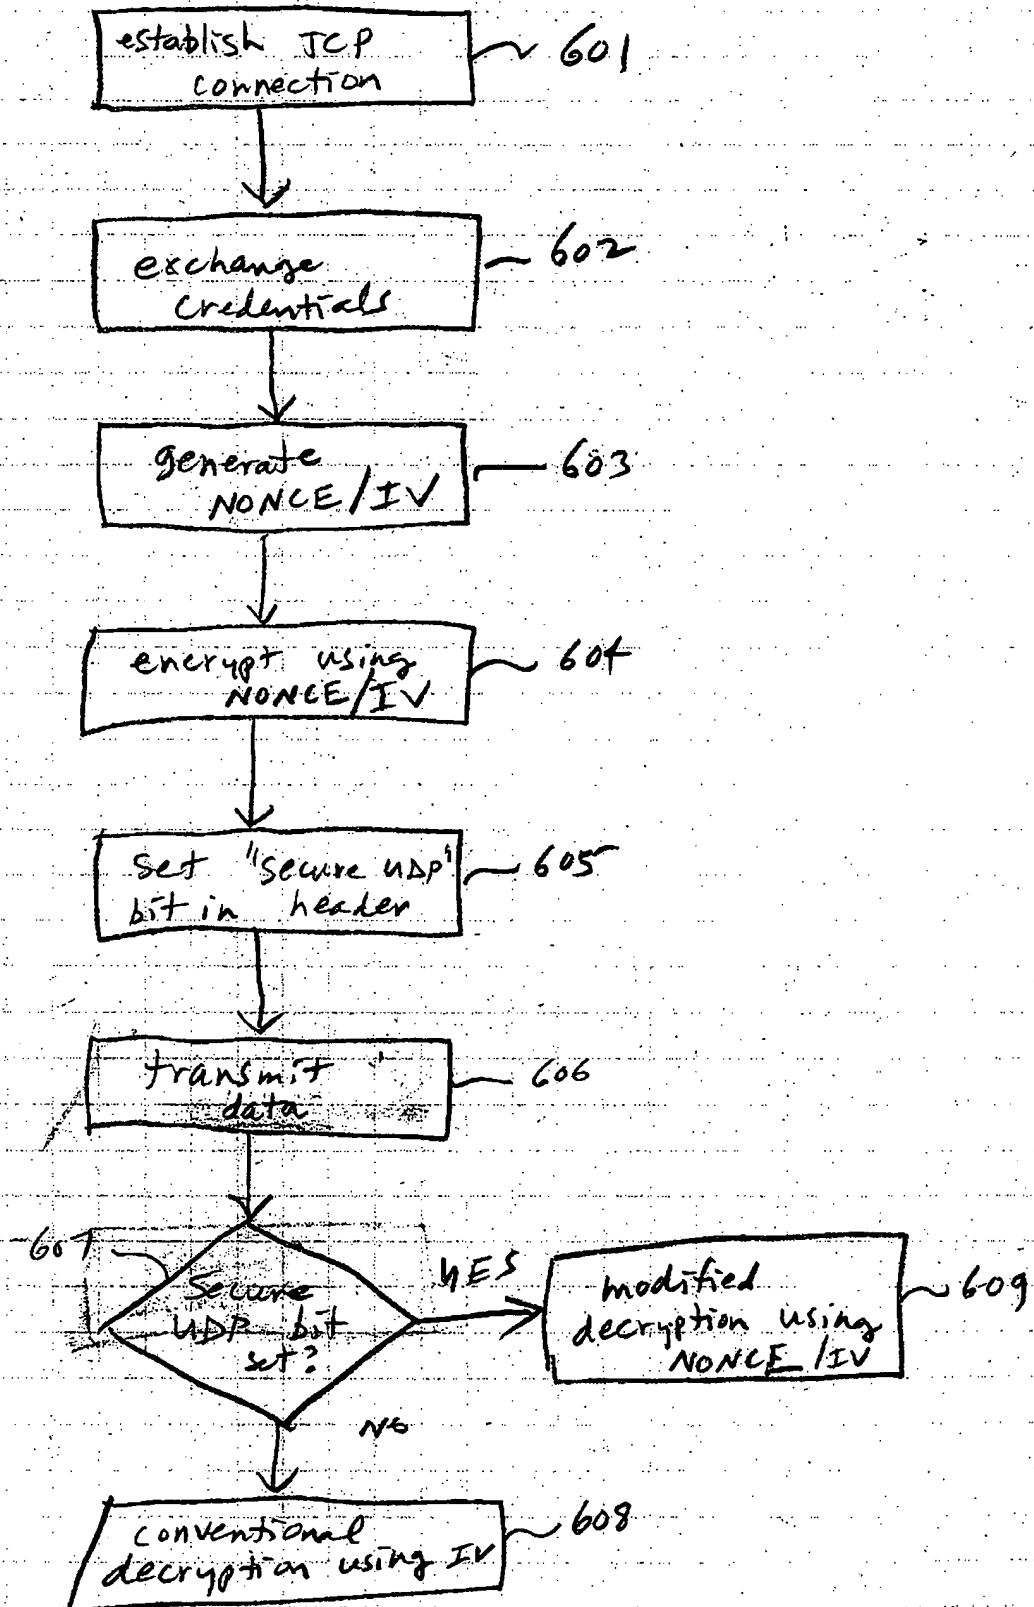 establish TCP
connection
601
exchange
credentials
602
generate
NONCE/IV
603
encrypt using
NONCE/IV
604
set "secure UDP"
bit in header
605
transmit
data
606
607
Secure
UDP bit
set?
YES
modified
decryption using
NONCE/IV
609
NO
conventional
decryption using IV
608